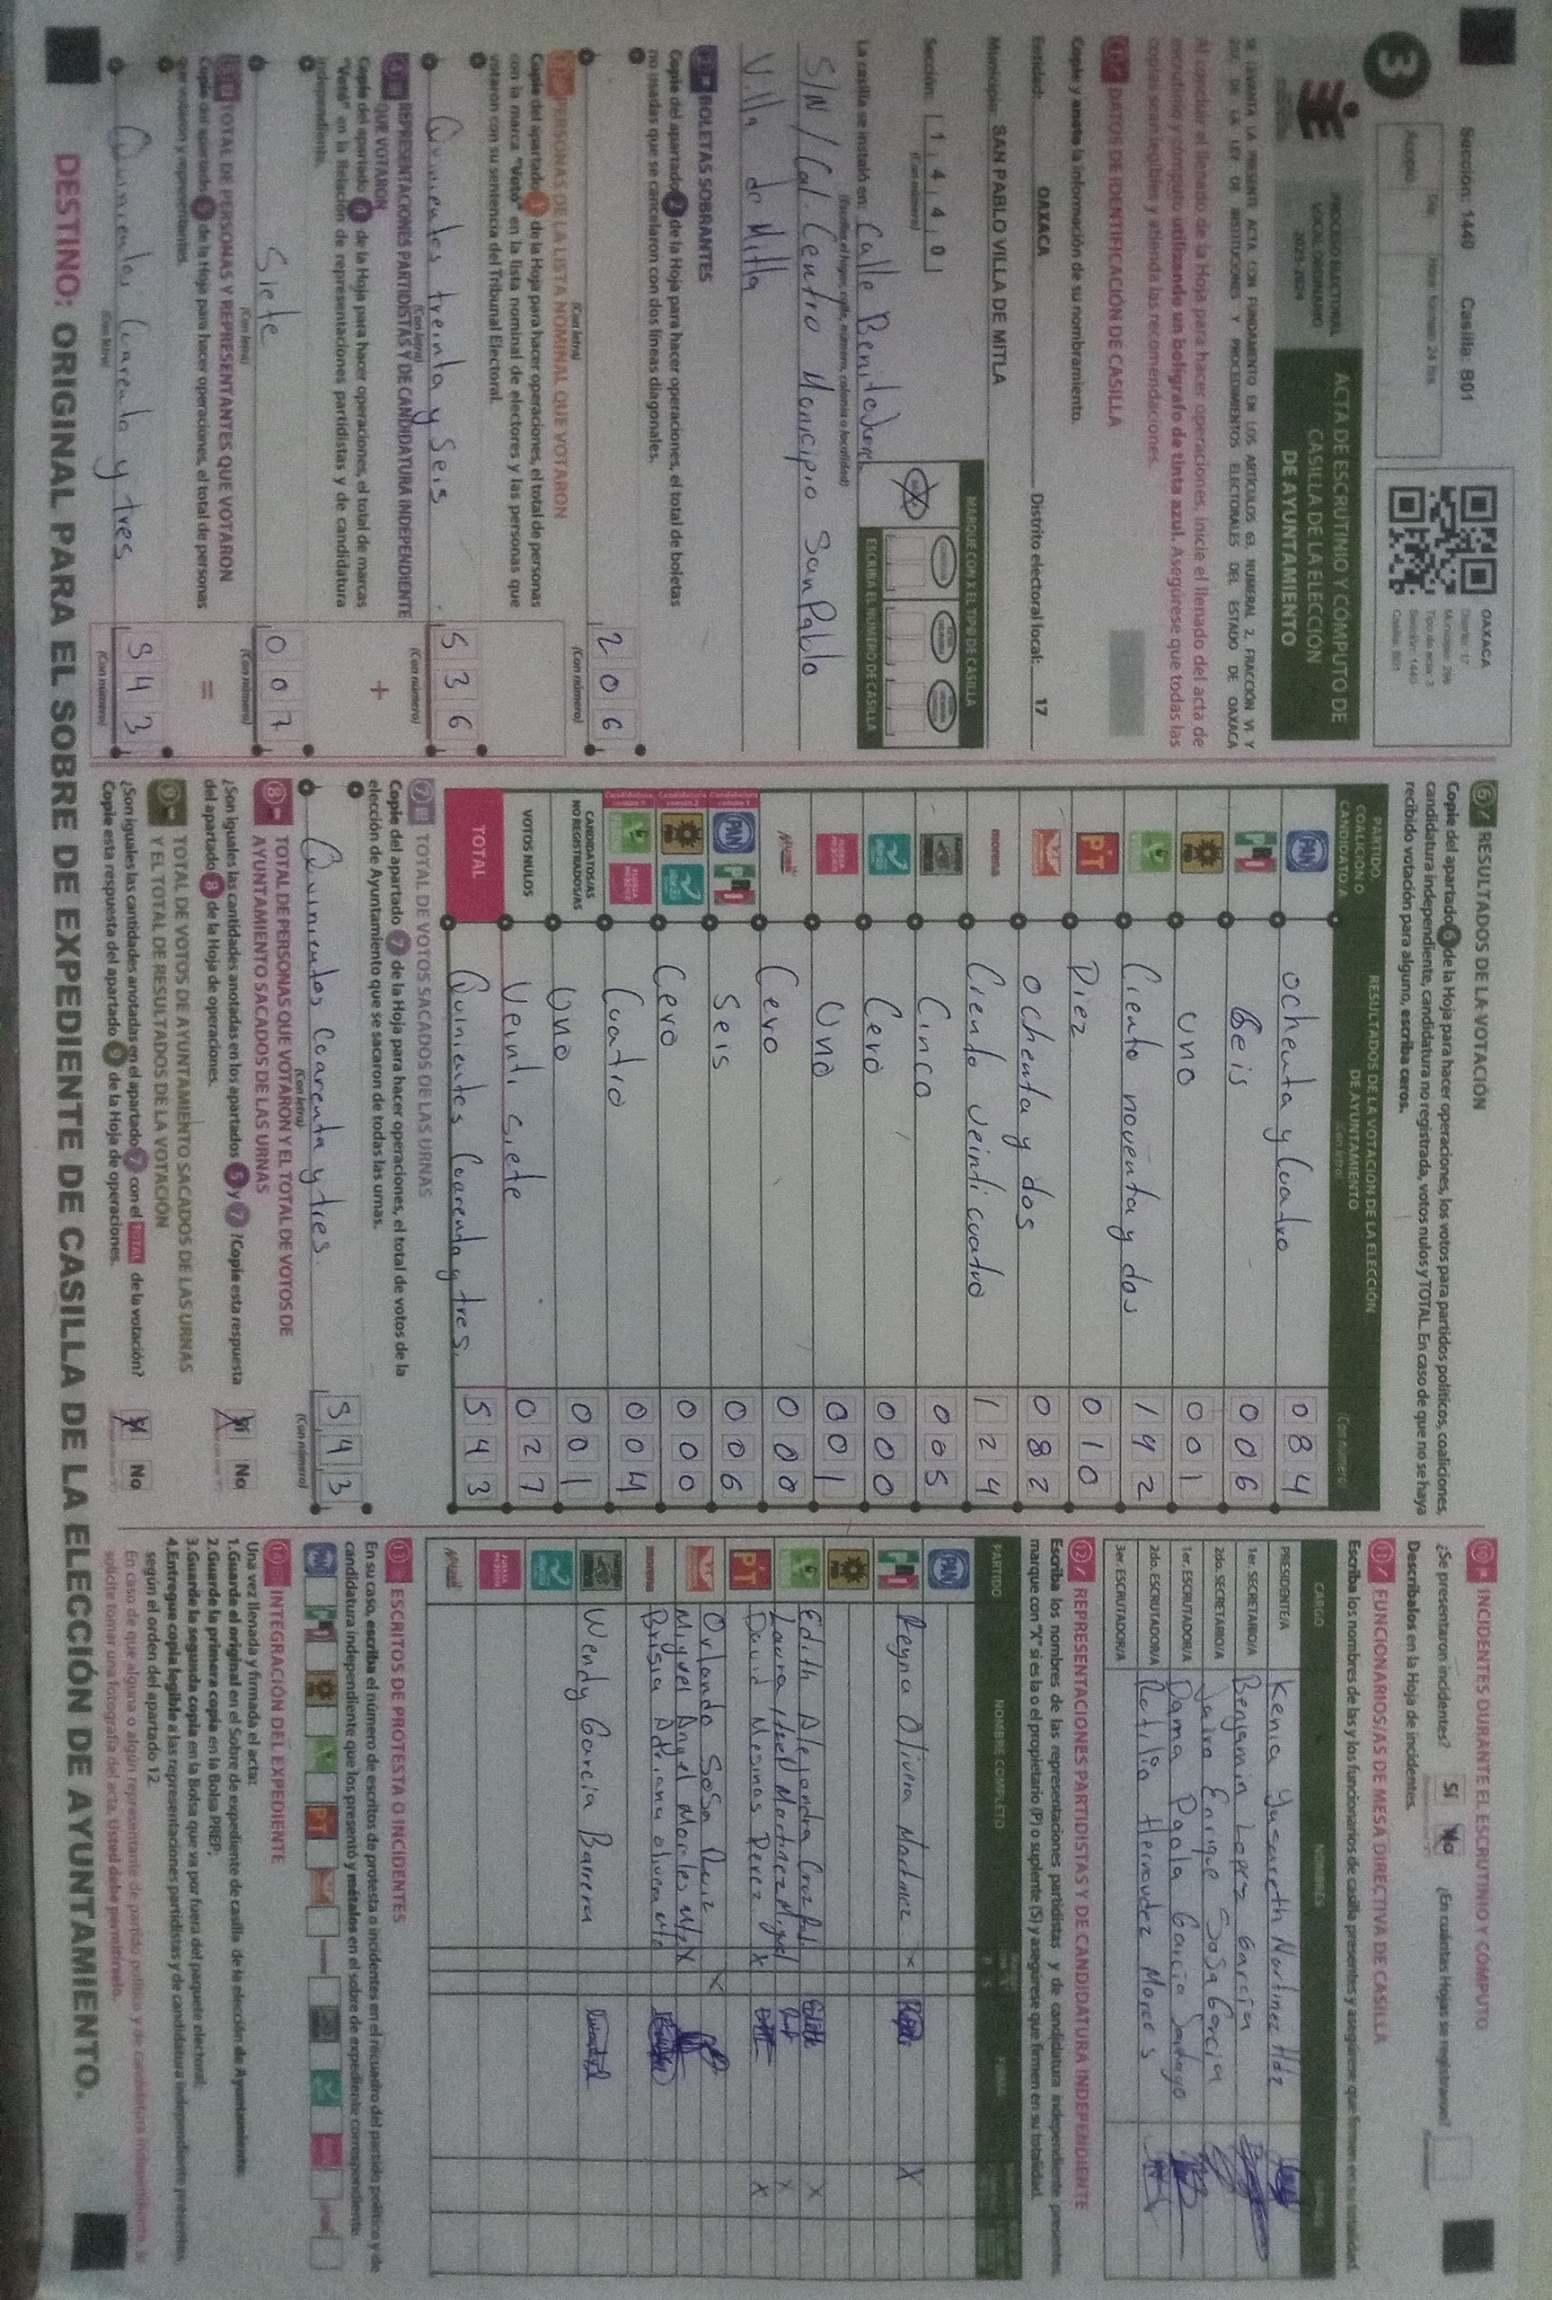 3
Sección: 1440 Casilla: B01
Acopio
Día:
Hora: formato 24 hrs.
OAXACA
Distrito: 17
Tipo de acta: 3
Sección: 1440
Casilla: B01
PROCESO ELECTORAL
LOCAL ORDINARIO
2023-2024
ACTA DE ESCRUTINIO Y CÓMPUTO DE
CASILLA DE LA ELECCIÓN
DE AYUNTAMIENTO
SE LEVANTA LA PRESENTE ACTA CON FUNDAMENTO EN LOS ARTÍCULOS 63, NUMERAL 2, FRACCIÓN VI Y
DE LA LEY DE INSTITUCIONES Y PROCEDIMIENTOS ELECTORALES DEL ESTADO DE OAXACA
Al copiar el llenado de la Hoja para hacer operaciones, inicie el llenado del acta de
escrutinio y cómputo utilizando un bolígrafo de tinta azul. Asegúrese que todas las
copias sean legibles y atienda las recomendaciones.
DATOS DE IDENTIFICACIÓN DE CASILLA
Copie y anote la información de su nombramiento.
Entidad: OAXACA Distrito electoral local: 17
Municipio: SAN PABLO VILLA DE MITLA
Sección: 1440
(Con número)
MARQUE CON X EL TIPO DE CASILLA
ESCRIBA EL NÚMERO DE CASILLA
La casilla se instaló en: Calle Benito Juarez
(Escriba el lugar, calle, número, colonia o localidad)
S/N / Col. Centro Municipio San Pablo
Villa de Mitla
2 BOLETAS SOBRANTES
Copie del apartado 2 de la Hoja para hacer operaciones, el total de boletas
no usadas que se cancelaron con dos líneas diagonales.
206
(Con letra) (Con número)
3 PERSONAS DE LA LISTA NOMINAL QUE VOTARON
Copie del apartado 3 de la Hoja para hacer operaciones, el total de personas
con la marca "Votó" en la lista nominal de electores y las personas que
votaron con su sentencia del Tribunal Electoral.
Quinientos treinta y Seis 536
(Con letra) (Con número)
4 REPRESENTACIONES PARTIDISTAS Y DE CANDIDATURA INDEPENDIENTE
QUE VOTARON
+
Copie del apartado 4 de la Hoja para hacer operaciones, el total de marcas
"Votó" en la Relación de representaciones partidistas y de candidatura
independiente.
Siete 007
(Con letra) (Con número)
5 TOTAL DE PERSONAS Y REPRESENTANTES QUE VOTARON
=
Copie del apartado 5 de la Hoja para hacer operaciones, el total de personas
que votaron y representantes.
Quinientos Cuarenta y tres 543
(Con letra) (Con número)
6 RESULTADOS DE LA VOTACIÓN
Copie del apartado 6 de la Hoja para hacer operaciones, los votos para partidos políticos, coaliciones,
candidatura independiente, candidatura no registrada, votos nulos y TOTAL. En caso de que no se haya
recibido votación para alguno, escriba ceros.
PARTIDO, COALICIÓN O CANDIDATO/A
RESULTADOS DE LA VOTACIÓN DE LA ELECCIÓN DE AYUNTAMIENTO
(Con letra) (Con número)
PAN ochenta y Cuatro 084
PRI Seis 006
PRD uno 001
Ciento noventa y dos 192
PT Diez 010
ochenta y dos 082
morena Ciento veinticuatro 124
Cinco 005
Cero 000
FUERZA MÉXICO Uno 001
Cero 000
Candidatura común 1 PAN PRI Seis 006
Candidatura común 2 PRD Cero 000
Cuatro 004
CANDIDATOS/AS NO REGISTRADOS/AS Uno 001
VOTOS NULOS Veinti siete 027
TOTAL Quinientos Cuarenta y tres. 543
7 TOTAL DE VOTOS SACADOS DE LAS URNAS
Copie del apartado 7 de la Hoja para hacer operaciones, el total de votos de la
elección de Ayuntamiento que se sacaron de todas las urnas.
Quinientos Cuarenta y tres. 543
(Con letra) (Con número)
8 TOTAL DE PERSONAS QUE VOTARON Y EL TOTAL DE VOTOS DE
AYUNTAMIENTO SACADOS DE LAS URNAS
¿Son iguales las cantidades anotadas en los apartados 5 y 7? Copie esta respuesta
del apartado 8 de la Hoja de operaciones.
Sí No
9 TOTAL DE VOTOS DE AYUNTAMIENTO SACADOS DE LAS URNAS
Y EL TOTAL DE RESULTADOS DE LA VOTACIÓN
¿Son iguales las cantidades anotadas en el apartado 7 con el TOTAL de la votación?
Copie esta respuesta del apartado 9 de la Hoja de operaciones.
Sí No
10 INCIDENTES DURANTE EL ESCRUTINIO Y CÓMPUTO
¿Se presentaron incidentes? Sí No ¿En cuántas Hojas se registraron?
Descríbalos en la Hoja de incidentes.
11 FUNCIONARIOS/AS DE MESA DIRECTIVA DE CASILLA
Escriba los nombres de las y los funcionarios de casilla presentes y asegúrese que firmen en su totalidad.
CARGO NOMBRES FIRMAS
PRESIDENTE/A Kenia Yuscareth Martinez Hdz
1er. SECRETARIO/A Benjamin Lopez Garcia
2do. SECRETARIO/A Jairo Enrique Sosa Garcia
1er. ESCRUTADOR/A Dama Paola Garcia Santiago
2do. ESCRUTADOR/A Rutilio Hernandez Marcos
3er. ESCRUTADOR/A
12 REPRESENTACIONES PARTIDISTAS Y DE CANDIDATURA INDEPENDIENTE
Escriba los nombres de las representaciones partidistas y de candidatura independiente presentes,
marque con "X" si es la o el propietario (P) o suplente (S) y asegúrese que firmen en su totalidad.
PARTIDO NOMBRE COMPLETO FIRMAS
PAN
PRI Reyna Olivera Martinez X X
PRD
Edith Alejandra Cruz X
Laura Martinez Miguel X
PT David Mesinas Perez X X
Orlando Sosa Ruiz X
Miguel Angel Morales Mtz X
morena Brisia Adriana Olivera Mtz
Wendy Garcia Barrera
FUERZA MÉXICO
13 ESCRITOS DE PROTESTA O INCIDENTES
En su caso, escriba el número de escritos de protesta o incidentes en el recuadro del partido político y de
candidatura independiente que los presentó y métalos en el sobre de expediente correspondiente.
14 INTEGRACIÓN DEL EXPEDIENTE
Una vez llenada y firmada el acta:
1.Guarde el original en el Sobre de expediente de casilla de la elección de Ayuntamiento;
2.Guarde la primera copia en la Bolsa PREP;
3.Guarde la segunda copia en la Bolsa que va por fuera del paquete electoral;
4.Entregue copia legible a las representaciones partidistas y de candidatura independiente presentes,
según el orden del apartado 12.
En caso de que alguna o algún representante de partido político y de candidatura independiente, le
solicite tomar una fotografía del acta, Usted debe permitírselo.
DESTINO: ORIGINAL PARA EL SOBRE DE EXPEDIENTE DE CASILLA DE LA ELECCIÓN DE AYUNTAMIENTO.